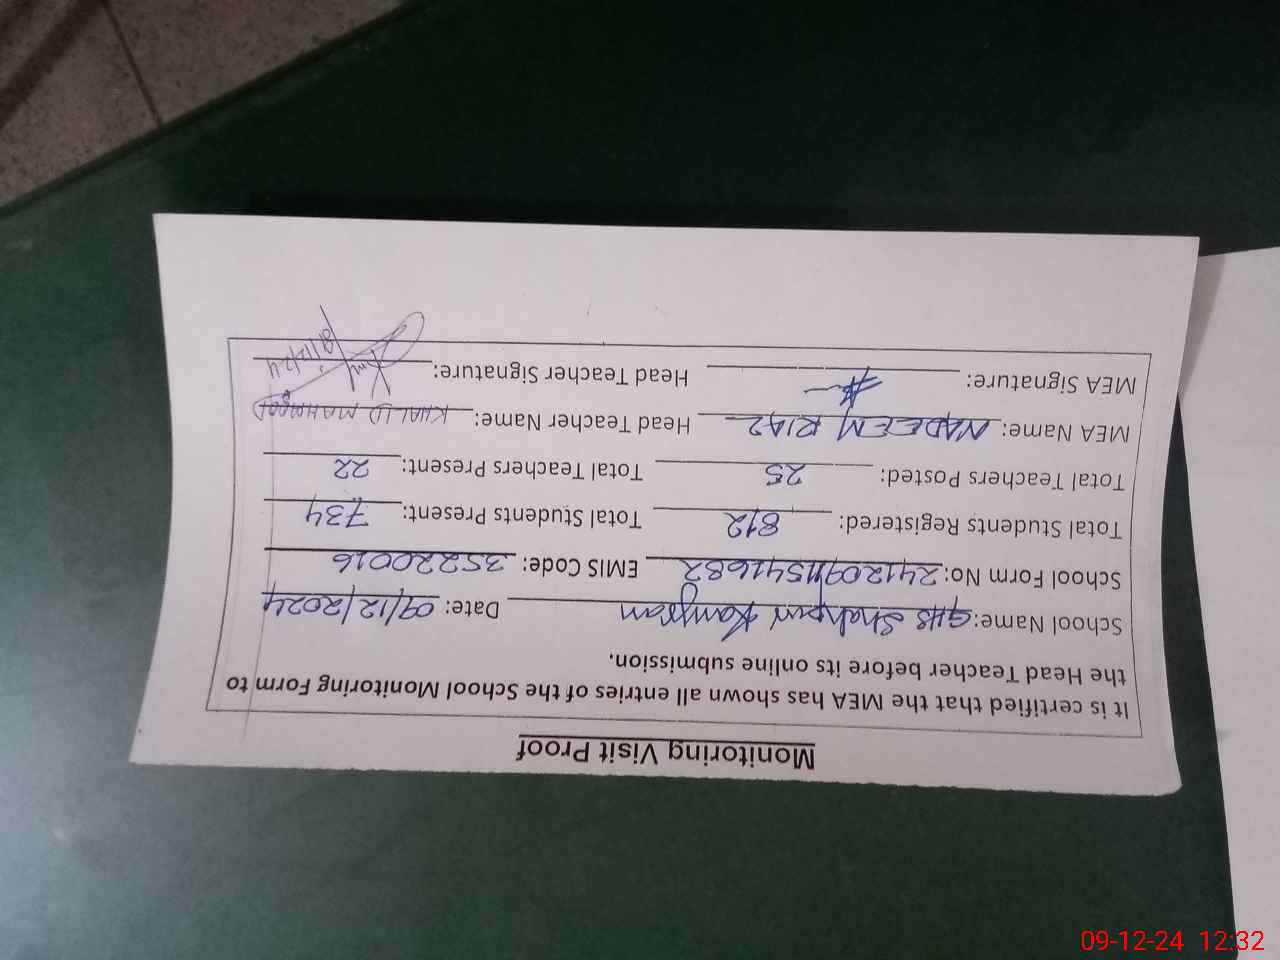 Monitoring Visit Proof
It is certified that the MEA has shown all entries of the School Monitoring Form to
the Head Teacher before its online submission.
School Name: GHS Shahpur Kanjran Date: 09/12/2024
School Form No: 241209115411682 EMIS Code: 35220016
Total Students Registered: 812 Total Students Present: 734
Total Teachers Posted: 25 Total Teachers Present: 22
MEA Name: NADEEM RIAZ Head Teacher Name: KHALID MAHMOOD
MEA Signature: Head Teacher Signature:
09-12-24 12:32